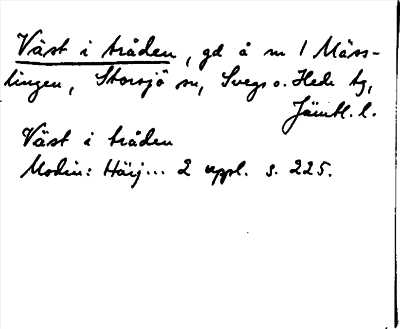 Väst i tråden, gd å nr 1 Mäss-
lingen, Storsjö sn, Svegs o. Hede tg,
Jämtl. l.
Väst i tråden
Modin: Härj... 2 uppl. s. 225.